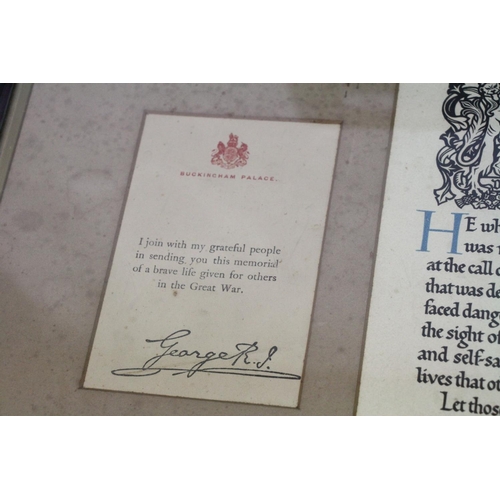 BUCKINGHAM PALACE.
I join with my grateful people
in sending you this memorial
of a brave life given for others
in the Great War.
George R.I.
HE
was
at the call
that was
faced
the sight of
and
lives that
Let those